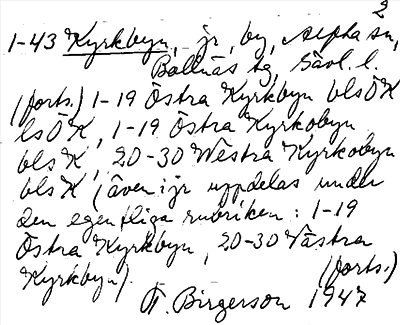 2
1-43 Kyrkbyn, jr, by, Alfta sn,
Bollnäs tg, Gävl. l.
(forts.) 1-19 Östra Kyrkbyn blsÖK
lsÖK, 1-19 Östra Kyrkobyn
blsK, 20-30 Westra Kyrkobyn
blsK (även i jr uppdelas under
den egentliga rubriken: 1-19
Östra Kyrkbyn, 20-30 Västra
Kyrkbyn).
(forts.)
Birgerson 1947